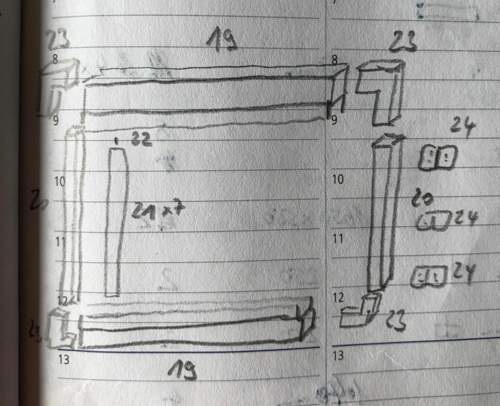 23 19 23
8 8
9 9
24
22
10 10
20 21 x 7 20
24
11 11
24
12 12
23 23
13 13
19